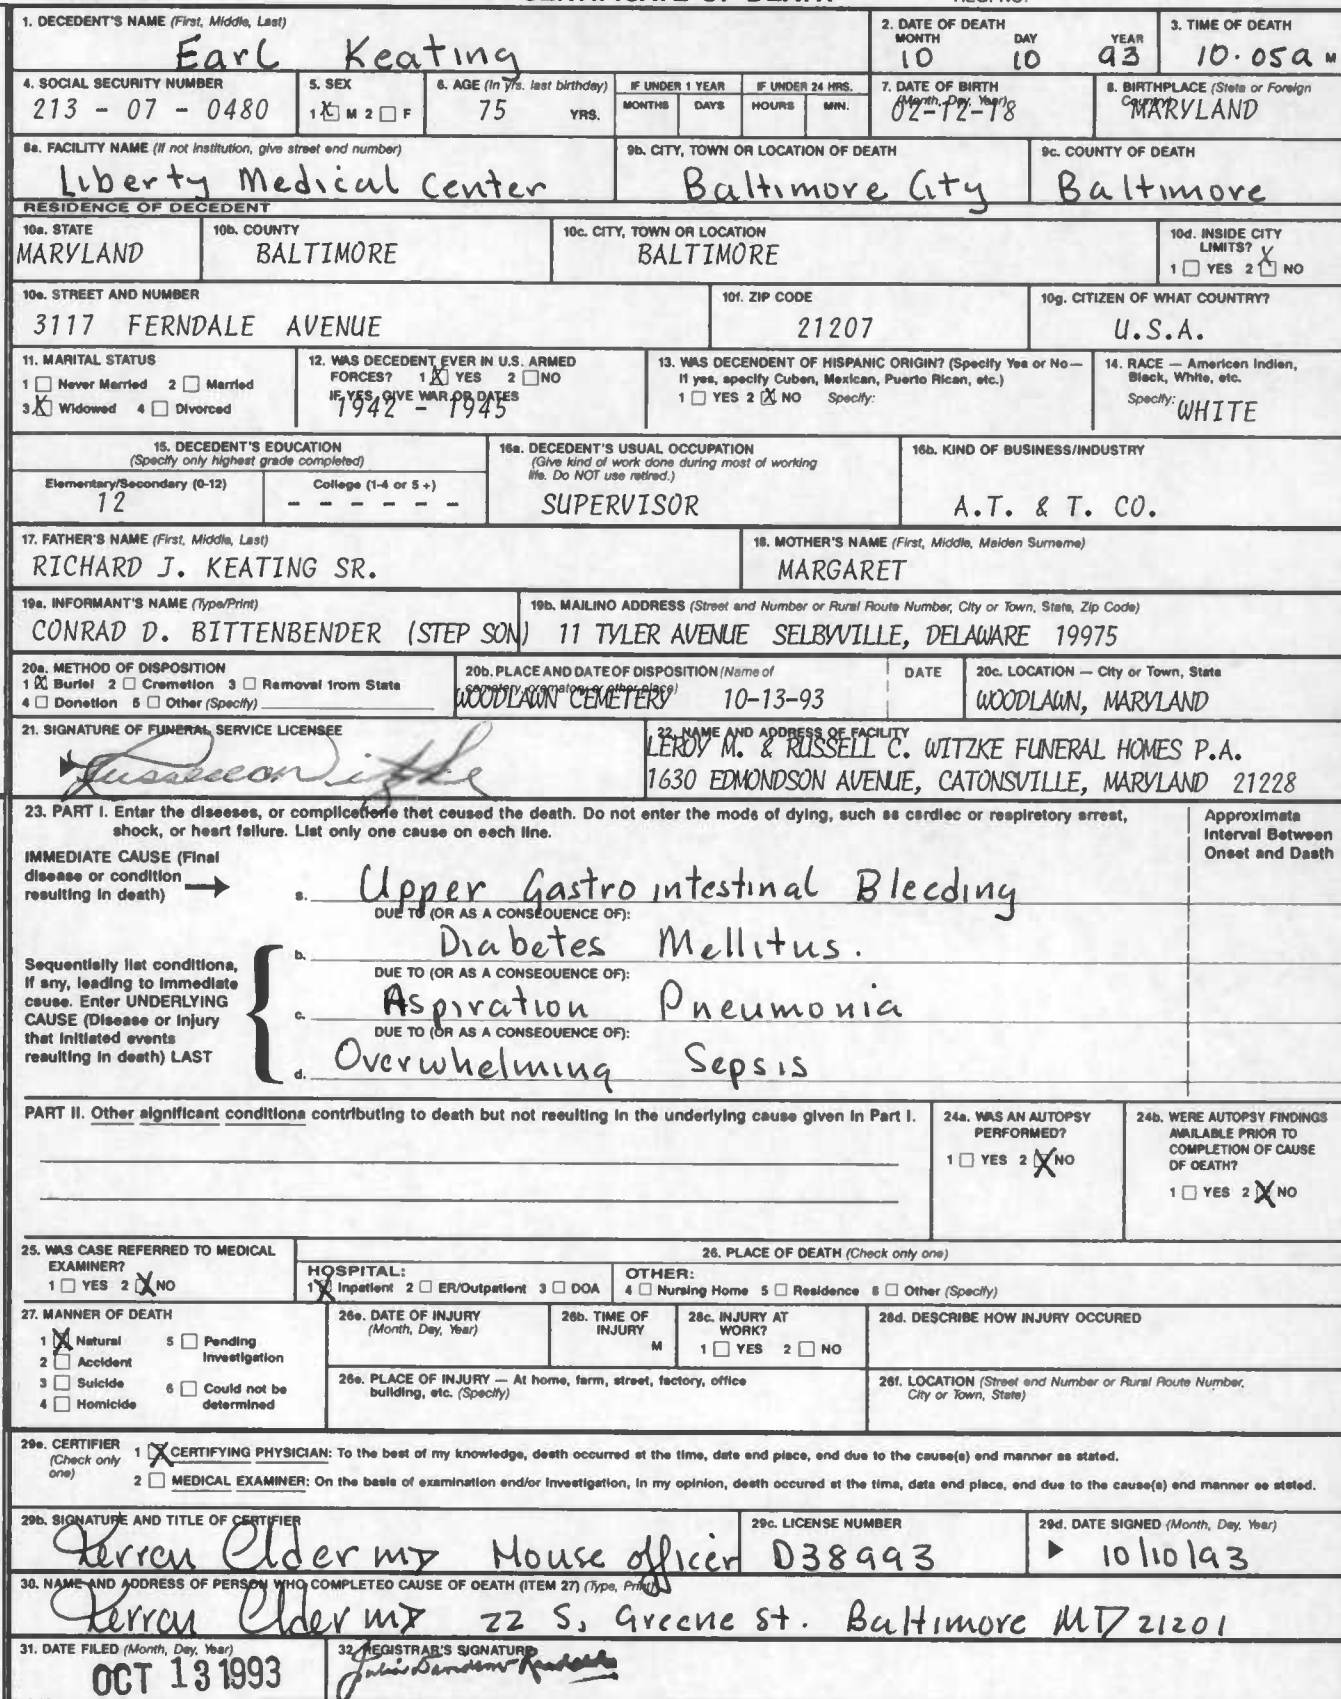 1. DECEDENT'S NAME (First, Middle, Last)
Earl Keating
2. DATE OF DEATH
MONTH DAY YEAR
10 10 93
3. TIME OF DEATH
10.05a M
4. SOCIAL SECURITY NUMBER
213 - 07 - 0480
5. SEX
1 X M 2 F
6. AGE (In yrs. last birthday)
75 YRS.
IF UNDER 1 YEAR
MONTHS DAYS
IF UNDER 24 HRS.
HOURS MIN.
7. DATE OF BIRTH
(Month, Day, Year)
02-12-18
8. BIRTHPLACE (State or Foreign
Country)
MARYLAND
8a. FACILITY NAME (If not institution, give street and number)
Liberty Medical Center
9b. CITY, TOWN OR LOCATION OF DEATH
Baltimore City
9c. COUNTY OF DEATH
Baltimore
RESIDENCE OF DECEDENT
10a. STATE
MARYLAND
10b. COUNTY
BALTIMORE
10c. CITY, TOWN OR LOCATION
BALTIMORE
10d. INSIDE CITY
LIMITS?
1 YES 2 X NO
10e. STREET AND NUMBER
3117 FERNDALE AVENUE
10f. ZIP CODE
21207
10g. CITIZEN OF WHAT COUNTRY?
U.S.A.
11. MARITAL STATUS
1 Never Married 2 Married
3 X Widowed 4 Divorced
12. WAS DECEDENT EVER IN U.S. ARMED
FORCES? 1 X YES 2 NO
IF YES, GIVE WAR OR DATES
1942 - 1945
13. WAS DECENDENT OF HISPANIC ORIGIN? (Specify Yes or No—
If yes, specify Cuban, Mexican, Puerto Rican, etc.)
1 YES 2 X NO Specify:
14. RACE — American Indian,
Black, White, etc.
Specify: WHITE
15. DECEDENT'S EDUCATION
(Specify only highest grade completed)
Elementary/Secondary (0-12)
12
College (1-4 or 5 +)
- - - - - -
16a. DECEDENT'S USUAL OCCUPATION
(Give kind of work done during most of working
life. Do NOT use retired.)
SUPERVISOR
16b. KIND OF BUSINESS/INDUSTRY
A.T. & T. CO.
17. FATHER'S NAME (First, Middle, Last)
RICHARD J. KEATING SR.
18. MOTHER'S NAME (First, Middle, Maiden Surname)
MARGARET
19a. INFORMANT'S NAME (Type/Print)
CONRAD D. BITTENBENDER (STEP SON)
19b. MAILING ADDRESS (Street and Number or Rural Route Number, City or Town, State, Zip Code)
11 TYLER AVENUE SELBYVILLE, DELAWARE 19975
20a. METHOD OF DISPOSITION
1 X Burial 2 Cremation 3 Removal from State
4 Donation 5 Other (Specify)
20b. PLACE AND DATE OF DISPOSITION (Name of
cemetery, crematory or other place)
WOODLAWN CEMETERY 10-13-93
DATE
20c. LOCATION — City or Town, State
WOODLAWN, MARYLAND
21. SIGNATURE OF FUNERAL SERVICE LICENSEE
22. NAME AND ADDRESS OF FACILITY
LEROY M. & RUSSELL C. WITZKE FUNERAL HOMES P.A.
1630 EDMONDSON AVENUE, CATONSVILLE, MARYLAND 21228
23. PART I. Enter the diseases, or complications that caused the death. Do not enter the mode of dying, such as cardiac or respiratory arrest,
shock, or heart failure. List only one cause on each line.
Approximate
Interval Between
Onset and Death
IMMEDIATE CAUSE (Final
disease or condition
resulting in death) →
a. Upper Gastro intestinal Bleeding
DUE TO (OR AS A CONSEQUENCE OF):
b. Diabetes Mellitus.
DUE TO (OR AS A CONSEQUENCE OF):
c. Aspiration Pneumonia
DUE TO (OR AS A CONSEQUENCE OF):
d. Overwhelming Sepsis
Sequentially list conditions,
if any, leading to immediate
cause. Enter UNDERLYING
CAUSE (Disease or injury
that initiated events
resulting in death) LAST
PART II. Other significant conditions contributing to death but not resulting in the underlying cause given in Part I.
24a. WAS AN AUTOPSY
PERFORMED?
1 YES 2 X NO
24b. WERE AUTOPSY FINDINGS
AVAILABLE PRIOR TO
COMPLETION OF CAUSE
OF DEATH?
1 YES 2 X NO
25. WAS CASE REFERRED TO MEDICAL
EXAMINER?
1 YES 2 X NO
26. PLACE OF DEATH (Check only one)
HOSPITAL:
1 X Inpatient 2 ER/Outpatient 3 DOA
OTHER:
4 Nursing Home 5 Residence 6 Other (Specify)
27. MANNER OF DEATH
1 X Natural 5 Pending
Investigation
2 Accident
3 Suicide 6 Could not be
determined
4 Homicide
28a. DATE OF INJURY
(Month, Day, Year)
28b. TIME OF
INJURY
M
28c. INJURY AT
WORK?
1 YES 2 NO
28d. DESCRIBE HOW INJURY OCCURED
28e. PLACE OF INJURY — At home, farm, street, factory, office
building, etc. (Specify)
28f. LOCATION (Street and Number or Rural Route Number,
City or Town, State)
29a. CERTIFIER
(Check only
one)
1 X CERTIFYING PHYSICIAN: To the best of my knowledge, death occurred at the time, date and place, and due to the cause(s) and manner as stated.
2 MEDICAL EXAMINER: On the basis of examination and/or investigation, in my opinion, death occured at the time, date and place, and due to the cause(s) and manner as stated.
29b. SIGNATURE AND TITLE OF CERTIFIER
Kerran Elder MD House officer
29c. LICENSE NUMBER
D38993
29d. DATE SIGNED (Month, Day, Year)
10/10/93
30. NAME AND ADDRESS OF PERSON WHO COMPLETED CAUSE OF DEATH (ITEM 27) (Type, Print)
Kerran Elder MD 22 S, Greene St. Baltimore MD 21201
31. DATE FILED (Month, Day, Year)
OCT 13 1993
32. REGISTRAR'S SIGNATURE